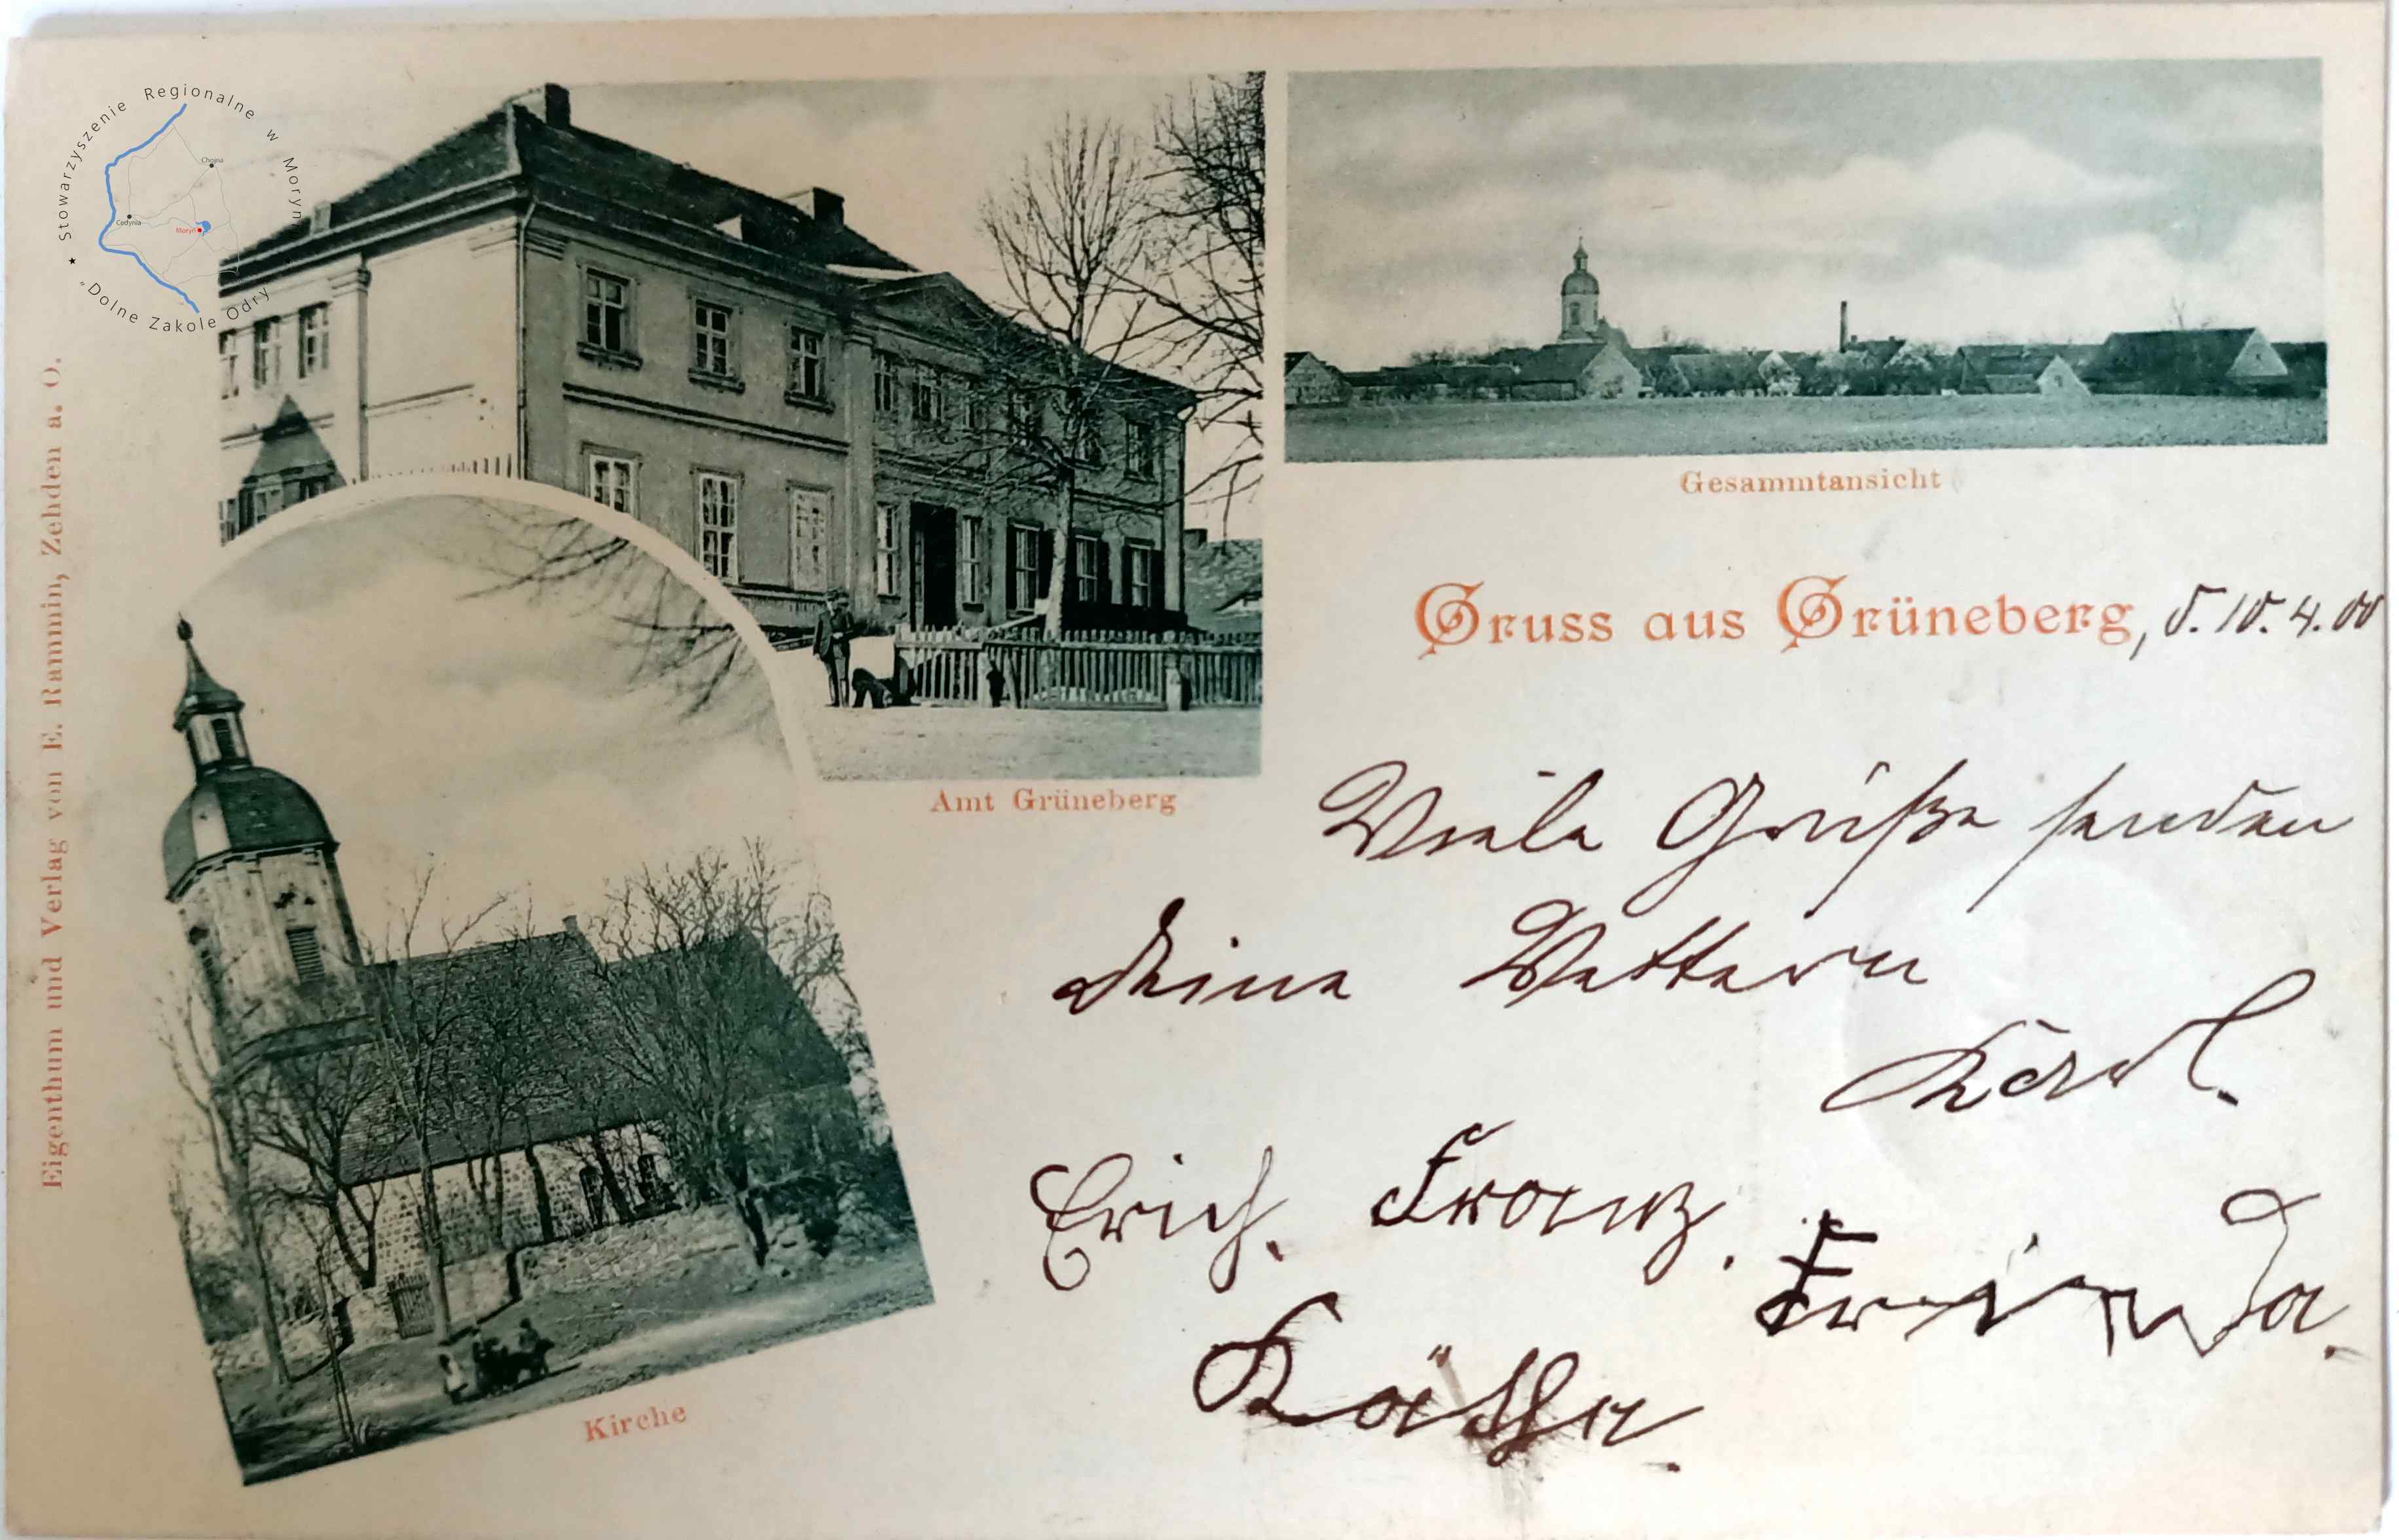 Stowarzyszenie Regionalne w Moryn
"Dolne Zakole Odry
Chojna
Cedynia
Moryń
Eigenthum und Verlag von E. Rammin, Zehden a. O.
Gesammtansicht
Amt Grüneberg
Gruss aus Grüneberg, d. 10. 4. 00
Viele Grüße senden
deine Vettern
Karl.
Erich. Franz.
Frida.
Käthe.
Kirche